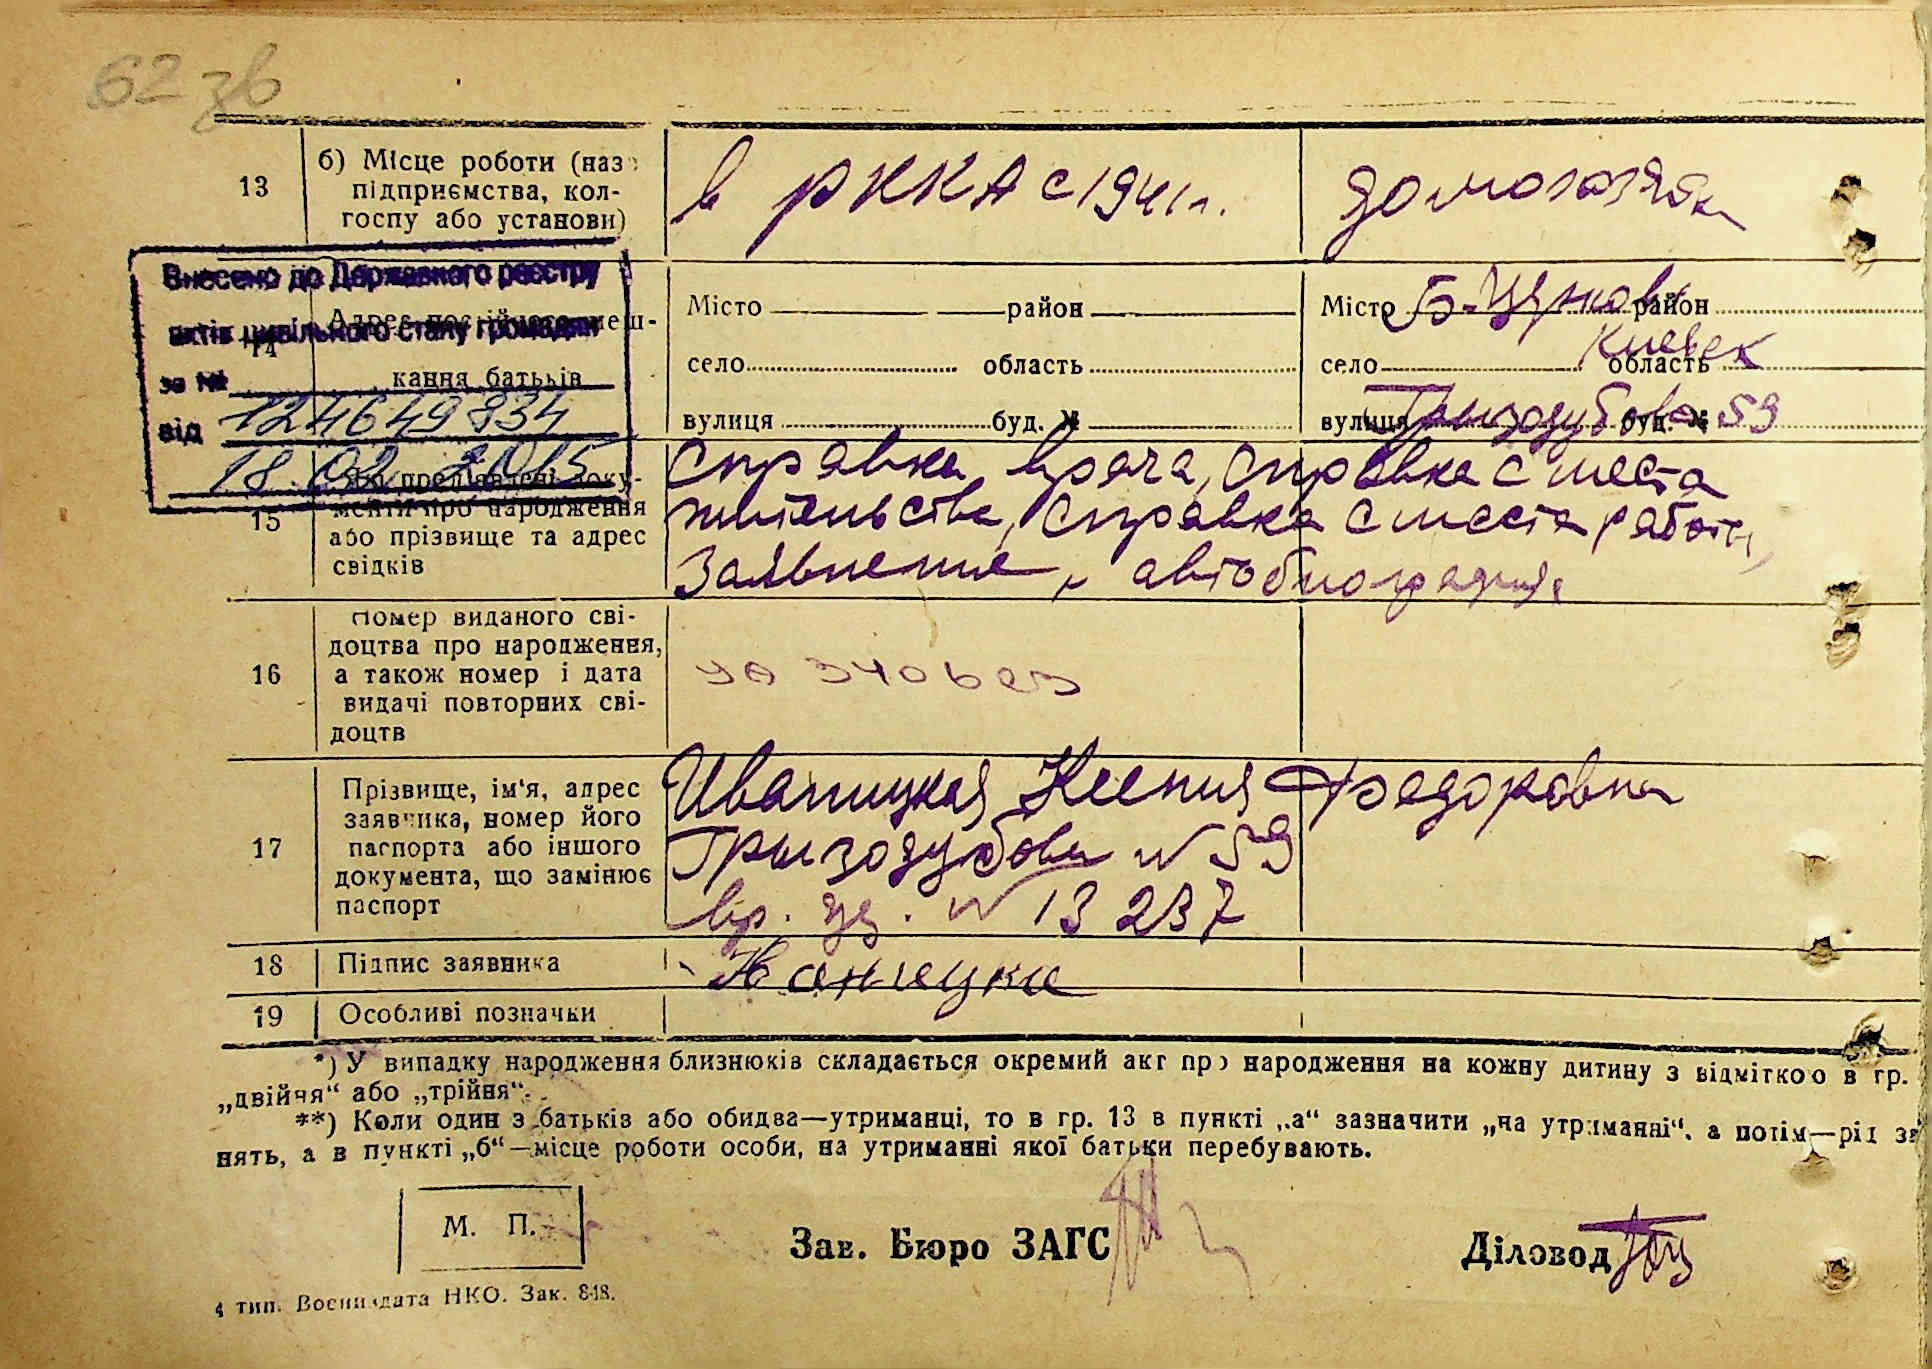 62 зв
13
б) Місце роботи (наз
підприємства, кол-
госпу або установи)
в РККА с 1941 г.
домохозяйка
Внесено до Державного реєстру
актів цивільного стану громадян
за №
від 124649834
18 02 2015
14
кання батьків
Місто район
село область
вулиця буд. №
Місто Б-Церковь район
село область Киевск
вулиця Гризодубова буд. № 59
15
менти про народження
або прізвище та адрес
свідків
Справка врача, справка с места
жительства, справка с места работы,
Заявление, автобиография
16
Номер виданого сві-
доцтва про народження,
а також номер і дата
видачі повторних сві-
доцтв
17
Прізвище, ім'я, адрес
заявника, номер його
паспорта або іншого
документа, що замінює
паспорт
Иваницкая Ксения Федоровна
Гризодубовы № 59
вр. уд. № 13237
18
Підпис заявника
19
Особливі позначки
*) У випадку народження близнюків складається окремий акт про народження на кожну дитину з відміткою в гр.
„двійня“ або „трійня“.
**) Коли один з батьків або обидва—утриманці, то в гр. 13 в пункті „а“ зазначити „на утриманні“, а потім—рід за
нять, а в пункті „б“—місце роботи особи, на утриманні якої батьки перебувають.
М. П.
Зав. Бюро ЗАГС
Діловод
4 тип. Воениздата НКО. Зак. 848.